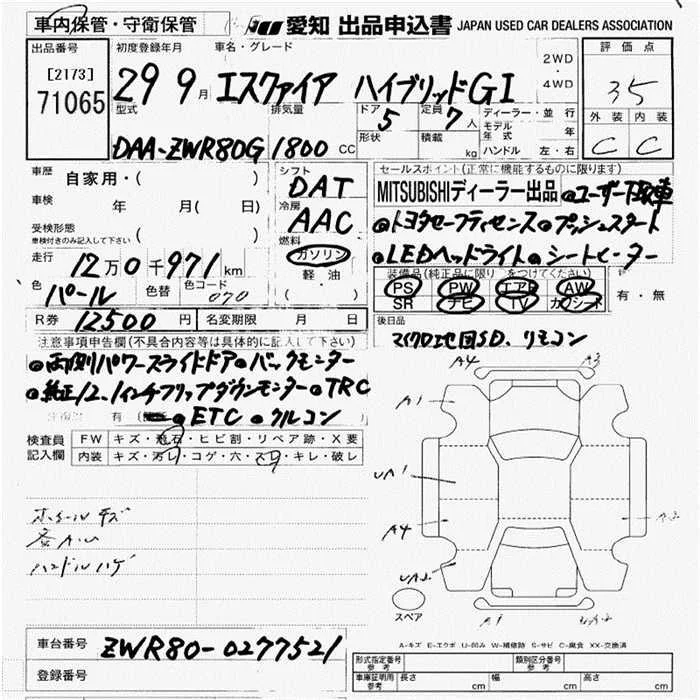 車内保管・守衛保管
JU 愛知 出品申込書 JAPAN USED CAR DEALERS ASSOCIATION
出品番号 初度登録年月 車名・グレード 評価点
[2173] 71065
29 9月 エスクァイア ハイブリッドGI
2WD・4WD
35
型式 排気量 ドア 5 定員 7人 ディーラー・並行
形状 積載 kg モデル年式 年
外装 内装
DAA-ZWR80G 1800 CC
ハンドル 左・右
C C
車歴 自家用・( )
シフト DAT
セールスポイント(正常に機能するものに限ります)
MITSUBISHIディーラー出品 ●ユーザー下取車
車検 年 月( 日)
冷房 AAC
●トヨタセーフティセンス●プッシュスタート
受検形態 車検付きのみ記入して下さい ( )
燃料 ガソリン 軽・油 ( )
●LEDヘッドライト●シートヒーター
走行 12万0千971km
装備品(純正品に限り○をつけてください)
PS PW エアB AW
SR ナビ TV カワシート
有・無
色 パール 色替 色コード 070
後日品
R券 12500円 名変期限 月 日
マイクロ地図SD、リモコン
注意事項申告欄(不具合内容等は具体的に記入して下さい)
●両側パワースライドドア●バックモニター
●純正12.1インチフリップダウンモニター●TRC
●ETC ●クルコン
検査員記入欄
FW キズ・飛石・ヒビ割・リペア跡・X要
内装 キズ・汚レ・コゲ・穴・スレ・キレ・破レ
ホイールキズ
各A・U
ハンドルハゲ
A4 A3
A1
UA1
A4 A2
UA2
A1
スペア
A-キズ E-エクボ U-凹み W-補修跡 S-サビ C-腐食 XX-交換済
車台番号 ZWR80-0277521
登録番号
形式指定番号 参考 類別区分番号 参考
車庫証明用 参考 長さ cm 幅 cm 高さ cm